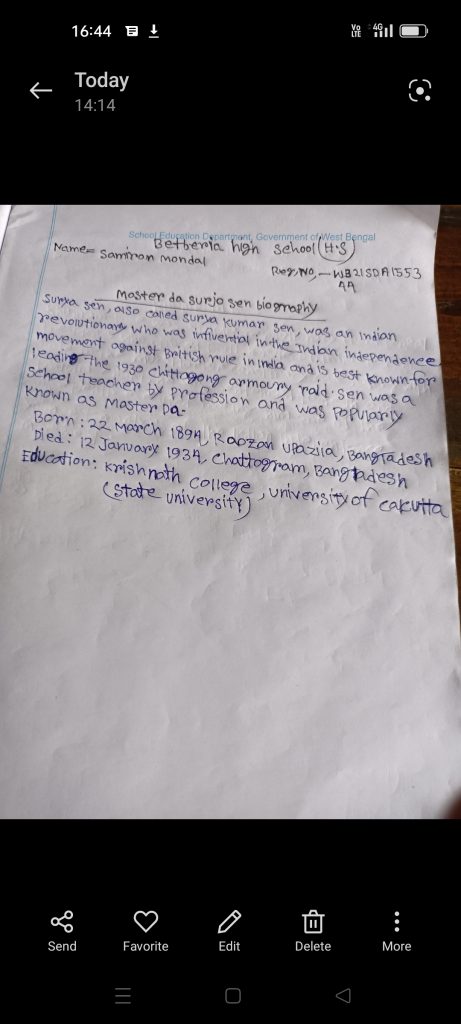 16:44
Vo LTE 4G
Today
14:14
School Education Department, Government of West Bengal
Betberia high school (H.S)
Name= Samiron mondal
Reg, No, - WB21SDA1553
Master da surjo sen biography
Surya sen, also called surya kumar sen, was an indian
revolutionary who was influential in the Indian independence
movement against British rule in india and is best known for
leading the 1930 Chittagong armoury raid. Sen was a
School teacher by profession and was popularly
Known as Master Da.
Born: 22 March 1894, Raozan upazila, Bangladesh
Died: 12 January 1934, Chattogram, Bangladesh
Education: Krishnath College, university of calcutta
(state university)
Send
Favorite
Edit
Delete
More